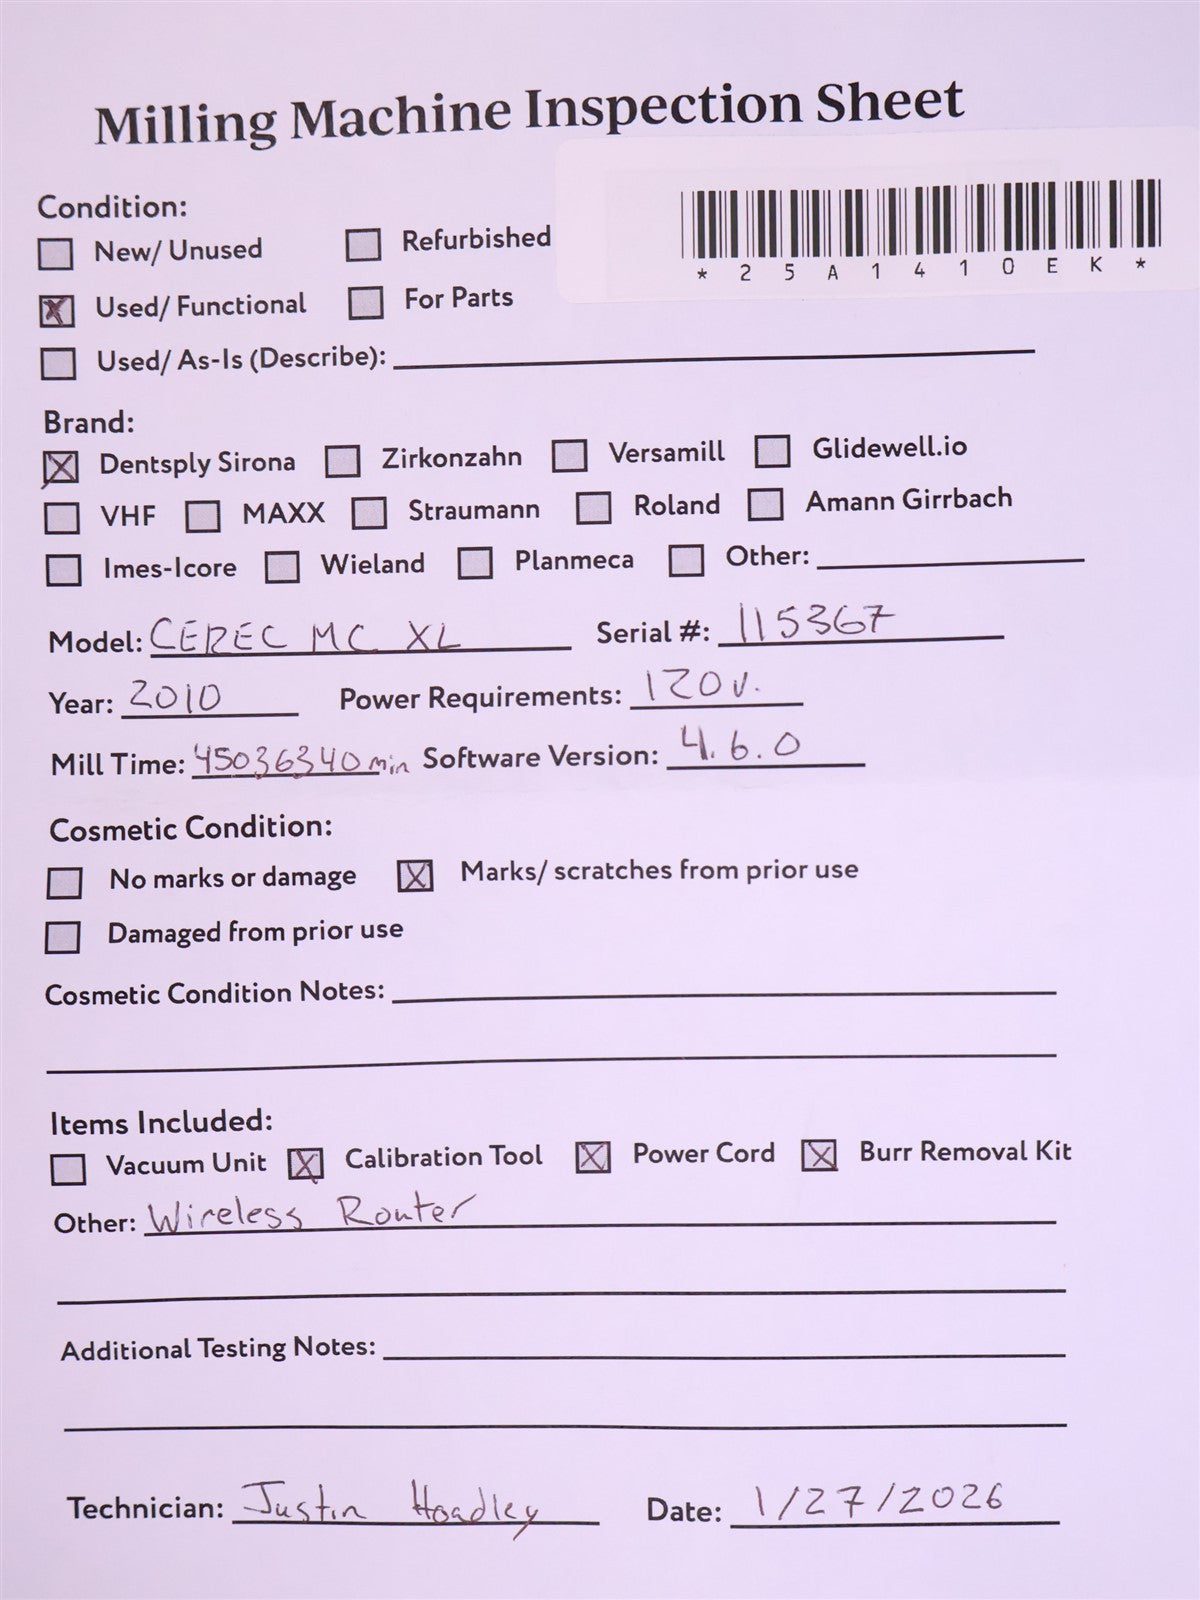 Milling Machine Inspection Sheet
Condition:
New/ Unused Refurbished
*25A1410EK*
Used/ Functional For Parts
Used/ As-Is (Describe):
Brand:
Dentsply Sirona Zirkonzahn Versamill Glidewell.io
VHF MAXX Straumann Roland Amann Girrbach
Imes-Icore Wieland Planmeca Other:
Model: CEREC MC XL Serial #: 115367
Year: 2010 Power Requirements: 120 v.
Mill Time: 45036340 min Software Version: 4.6.0
Cosmetic Condition:
No marks or damage Marks/ scratches from prior use
Damaged from prior use
Cosmetic Condition Notes:
Items Included:
Vacuum Unit Calibration Tool Power Cord Burr Removal Kit
Other: Wireless Router
Additional Testing Notes:
Technician: Justin Hoadley Date: 1/27/2026